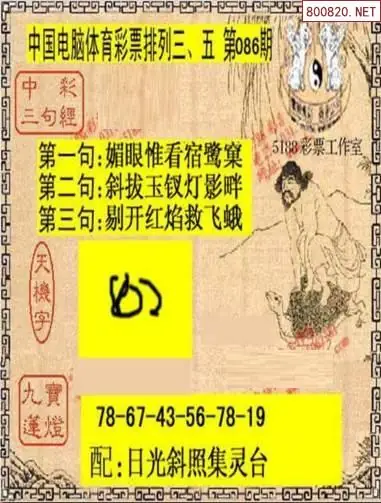 800820.NET
中国电脑体育彩票排列三、五 第086期
中彩
三句經
5188彩票工作室
第一句:媚眼惟看宿鹭窠
第二句:斜拔玉钗灯影畔
第三句:剔开红焰救飞蛾
天機字
九寶
蓮燈
78-67-43-56-78-19
配:日光斜照集灵台